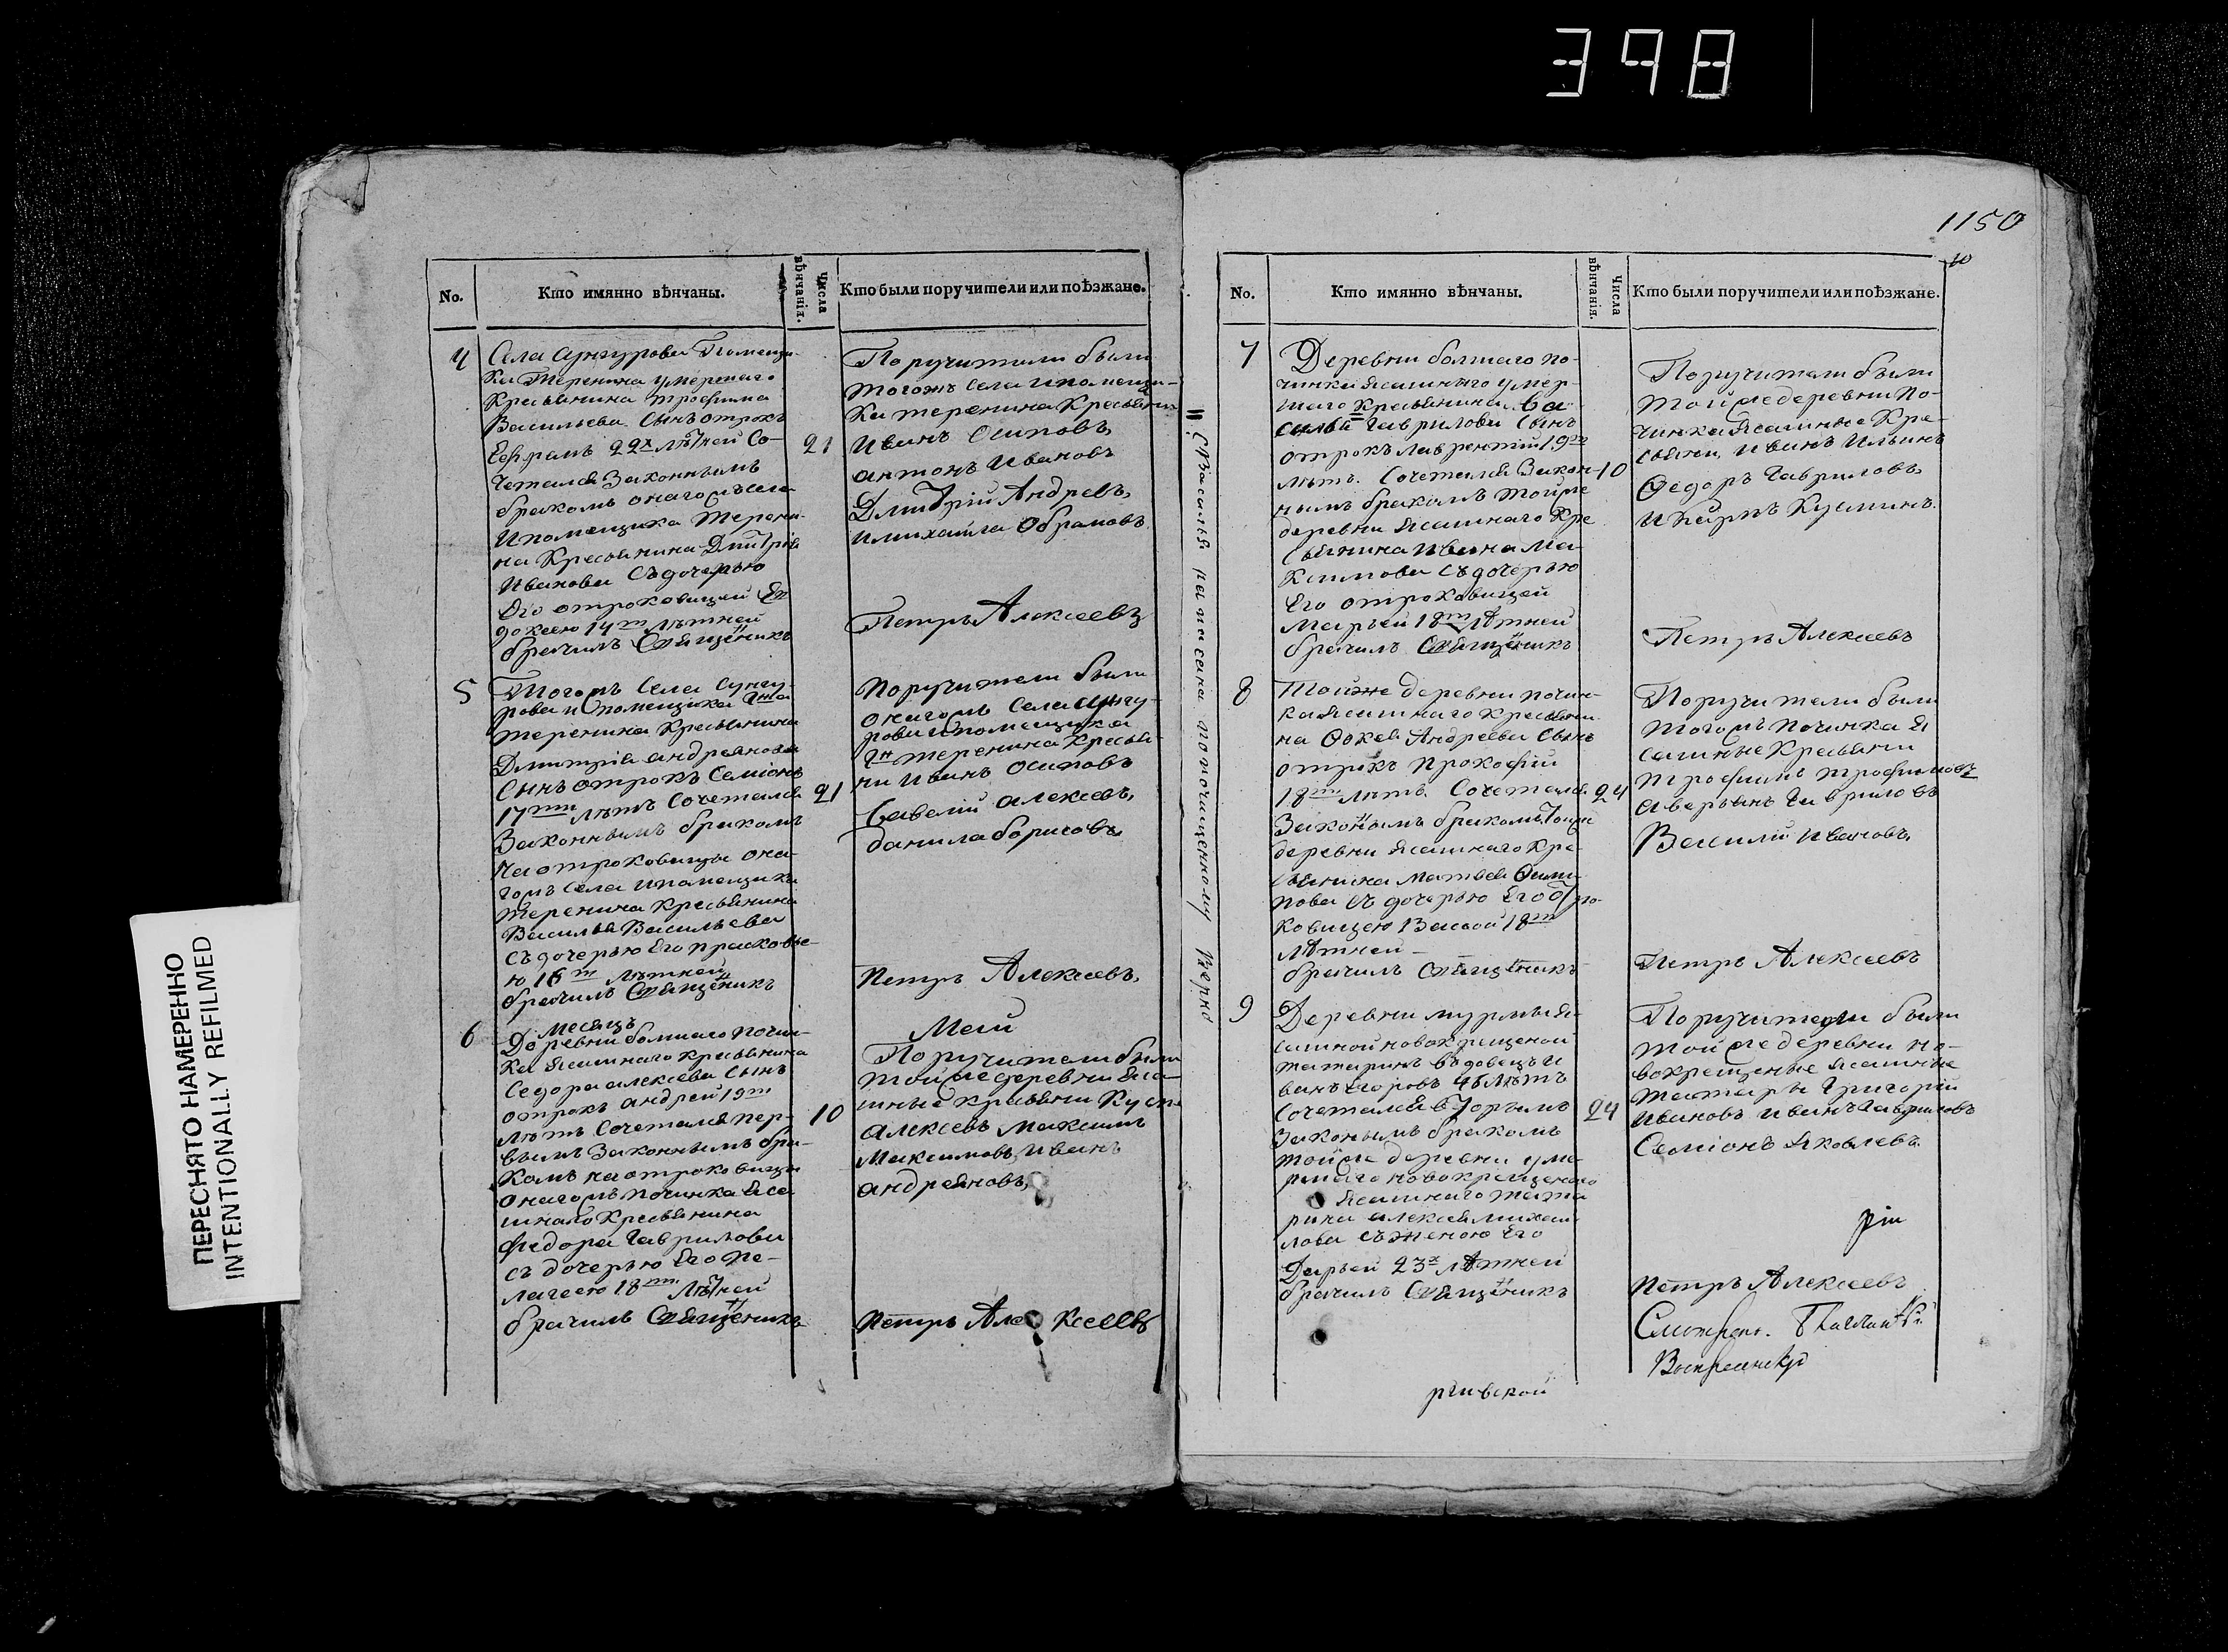 398
1150
10
No.
Кто имянно вѣнчаны.
Числа вѣнчанія.
Кто были поручители или поѣзжане.
4
Села Сунгурова Помещи-
ка Теренина умершаго
Крестьянина трофима
Васильева Сынъ отрокъ
Ефрамъ 22х лѣтней Со-
четался Законнымъ
бракомъ онагожъ села
Ипомещика Терени-
на Крестьянина Дмитрия
Иванова Съдочерью
Его отроковицей Ев
докеею 17т лѣтней
брачилъ Священникъ
21
Поручители были
тогожъ села ипомещи-
ка теренина Крестьяни
Иванъ Осиповъ
антонъ Ивановъ
Дмитрій Андревъ,
имихаила Обрамовъ
Петръ Алексеевъ
5
Тогожъ Села Сунгу-
рова и помещика Гна
теренина Крестьянина
Дмитрия андреянова
Сынъ отрокъ Семіонъ
17тт лѣтъ Сочетался
Законнымъ бракомъ
на отроковицы она-
гожъ Села ипомещика
теренина Крестьянина
Василья Васильева
съдочерью Его прасковье-
ю 16т лѣтней
брачилъ Священникъ
21
Поручители были
онагожъ села сунгу-
рова ипомещика
гн теренина Крестья-
ни Иванъ Осиповъ
Савелій алексеевъ,
данила борисовъ
Петръ Алексеевъ,
месяцъ
Маи
6
Деревни болшаго почин-
ка Ясашнаго крестьянина
Седора алексеева Сынъ
отрокъ андрей 19т
лѣтъ Сочетался пер-
вымъ Законнымъ бра-
комъ на отроковицы
онагожъ починка Яса
шнаго Крестьянина
Федора Гаврилова
съ дочерью Его Пе-
лагеею 18т лѣтней
брачилъ Священникъ
10
Поручители были
тойже деревни Яса-
шные крестьяни Кузма
алексеевъ Максимъ
Максимовъ, Иванъ
андреяновъ,
Петръ Алексеевъ
No.
Кто имянно вѣнчаны.
Числа вѣнчанія.
Кто были поручители или поѣзжане.
7
Деревни болшаго по-
чинка Ясашнаго умер-
шаго Крестьянина Ва
силья Гаврилова Сынъ
отрокъ лаврентий 19т
лѣтъ. Сочетался Закон-
нымъ бракомъ тойже
деревни Ясашнаго Кре
стьянина Ивана Ма-
ксимова Съдочерью
Его отроковицей
Марьей 18т лѣтней
брачилъ Священникъ
10
Поручители были
тойже деревни По-
чинка Ясашные Кре-
стьяни, Иванъ Ильинъ
Федоръ Гавриловъ,
И Карпъ Кузминъ.
Петръ Алексеевъ
8
Тойже деревни почин-
ка Ясашнаго крестьяни-
на Фокея Андреева Сынъ
отрокъ прокофий
18т лѣтъ. Сочетался
Законымъ бракомъ, Тойже
деревни Ясашнаго Кре-
стьянина матвея Фили-
пова Съ дочерью Его Отро-
ковицею Васой 18т
лѣтней
брачилъ Священникъ
24
Поручители были
тогожъ починка Я
сашные Крестьяни
трофимъ трофимовъ
аверьянъ Гавриловъ
Василий Ивановъ,
Петръ Алексеевъ
9
Деревни мурмы Я-
сашной новокрещеной
татаринъ вдовецъ И
ванъ Егоровъ 46 лѣтъ
Сочетался вторымъ
Законымъ бракомъ
тойже деревни уме-
ршаго новокрещенаго
Ясашнаго тата
рина алексея михаи-
лова съженою Его
Дарьей 23х лѣтней
брачилъ Священникъ
24
Поручители были
тойже деревни но-
вокрещеные Ясашные
татары Григорий
Ивановъ Иванъ Гавриловъ
Семіонъ Яковлевъ.
Петръ Алексеевъ
Смотрелъ.
Воскресенскій
Василья написана по почищенному верно
ПЕРЕСНЯТО НАМЕРЕННО
INTENTIONALLY REFILMED